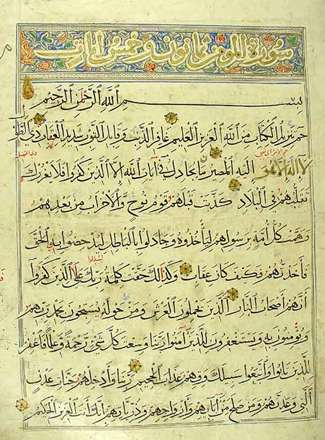 سورة المؤمن
بسم الله الرحمن الرحيم
حم تنزيل الكتاب من الله العزيز العليم غافر الذنب وقابل التوب شديد العقاب ذي الطول
لا اله الا هو اليه المصير ما يجادل في آيات الله الا الذين كفروا فلا يغررك
تقلبهم في البلاد كذبت قبلهم قوم نوح والاحزاب من بعدهم
وهمت كل امة برسولهم ليأخذوه وجادلوا بالباطل ليدحضوا به الحق
فاخذتهم فكيف كان عقاب وكذلك حقت كلمة ربك على الذين كفروا
انهم اصحاب النار الذين يحملون العرش ومن حوله يسبحون بحمد ربهم
ويؤمنون به ويستغفرون للذين آمنوا ربنا وسعت كل شيء رحمة وعلما فاغفر
للذين تابوا واتبعوا سبيلك وقهم عذاب الجحيم ربنا وادخلهم جنات عدن
التي وعدتهم ومن صلح من آبائهم وازواجهم وذرياتهم انك انت العزيز الحكيم